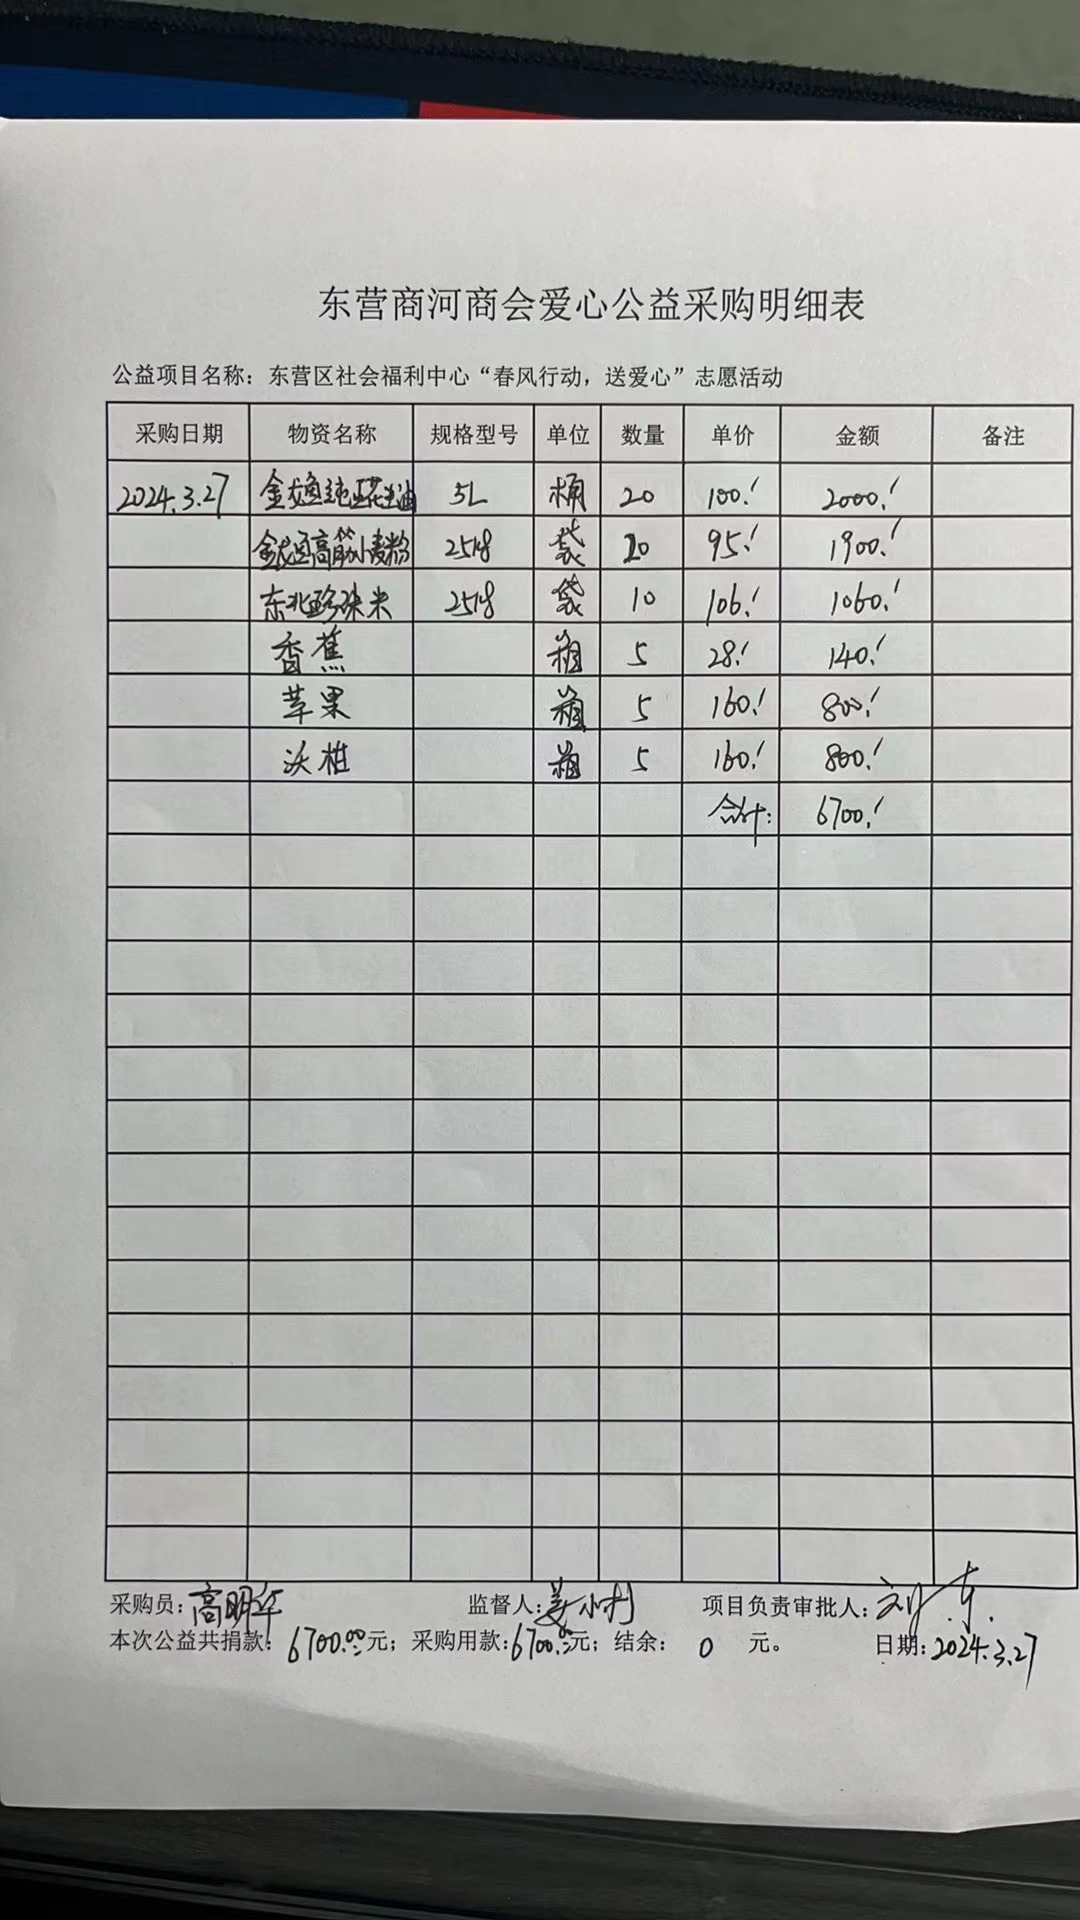 东营商河商会爱心公益采购明细表
公益项目名称：东营区社会福利中心“春风行动，送爱心”志愿活动
采购日期 物资名称 规格型号 单位 数量 单价 金额 备注
2024.3.27 金龙鱼纯正花生油 5L 桶 20 100.- 2000.-
金龙鱼高筋小麦粉 25kg 袋 20 95.- 1900.-
东北珍珠米 25kg 袋 10 106.- 1060.-
香蕉 箱 5 28.- 140.-
苹果 箱 5 160.- 800.-
沃柑 箱 5 160.- 800.-
合计: 6700.-
采购员: 高明华 监督人: 姜小利 项目负责审批人: 刘东
本次公益共捐款: 6700.00元；采购用款: 6700.00元；结余: 0 元。 日期: 2024.3.27